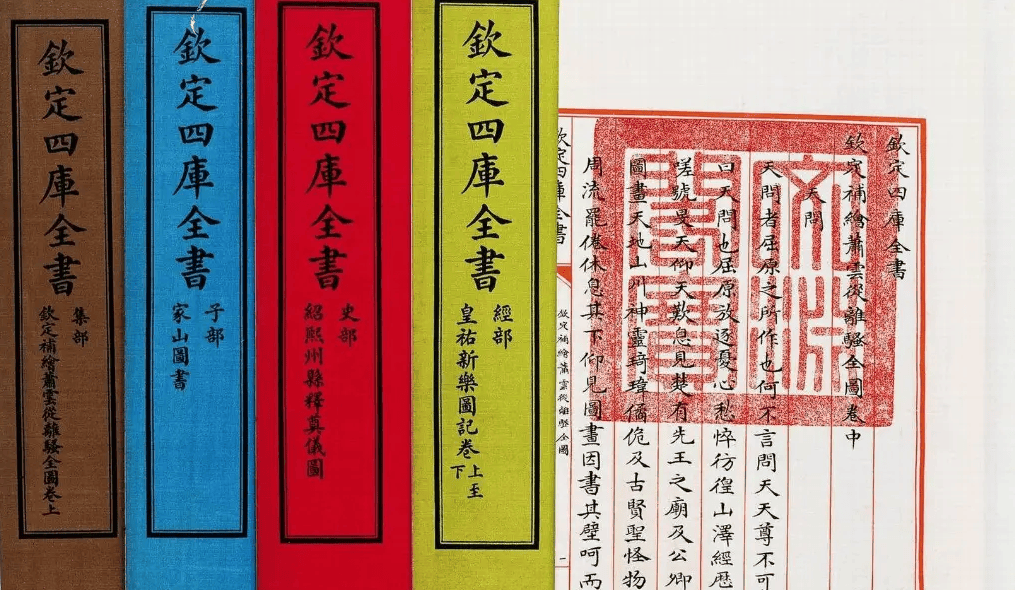 欽定四庫全書
欽定補繪蕭雲從離騷全圖卷中
天問
天問者屈原之所作也何不言問天天尊不可
曰天問也屈原放逐憂心愁悴彷徨山澤經歷
嗟號旻天仰天歎息見楚有先王之廟及公卿
圖畫天地山川神靈琦瑋僪佹及古賢聖怪物
周流罷倦休息其下仰見圖畫因書其壁呵而
文津
閣寶
欽定四庫全書
欽定補繪蕭雲從離騷全圖
一
欽定四庫全書
經部
皇祐新樂圖記卷上至下
欽定四庫全書
史部
紹熙州縣釋奠儀圖
欽定四庫全書
子部
家山圖書
欽定四庫全書
集部
欽定補繪蕭雲從離騷全圖卷上